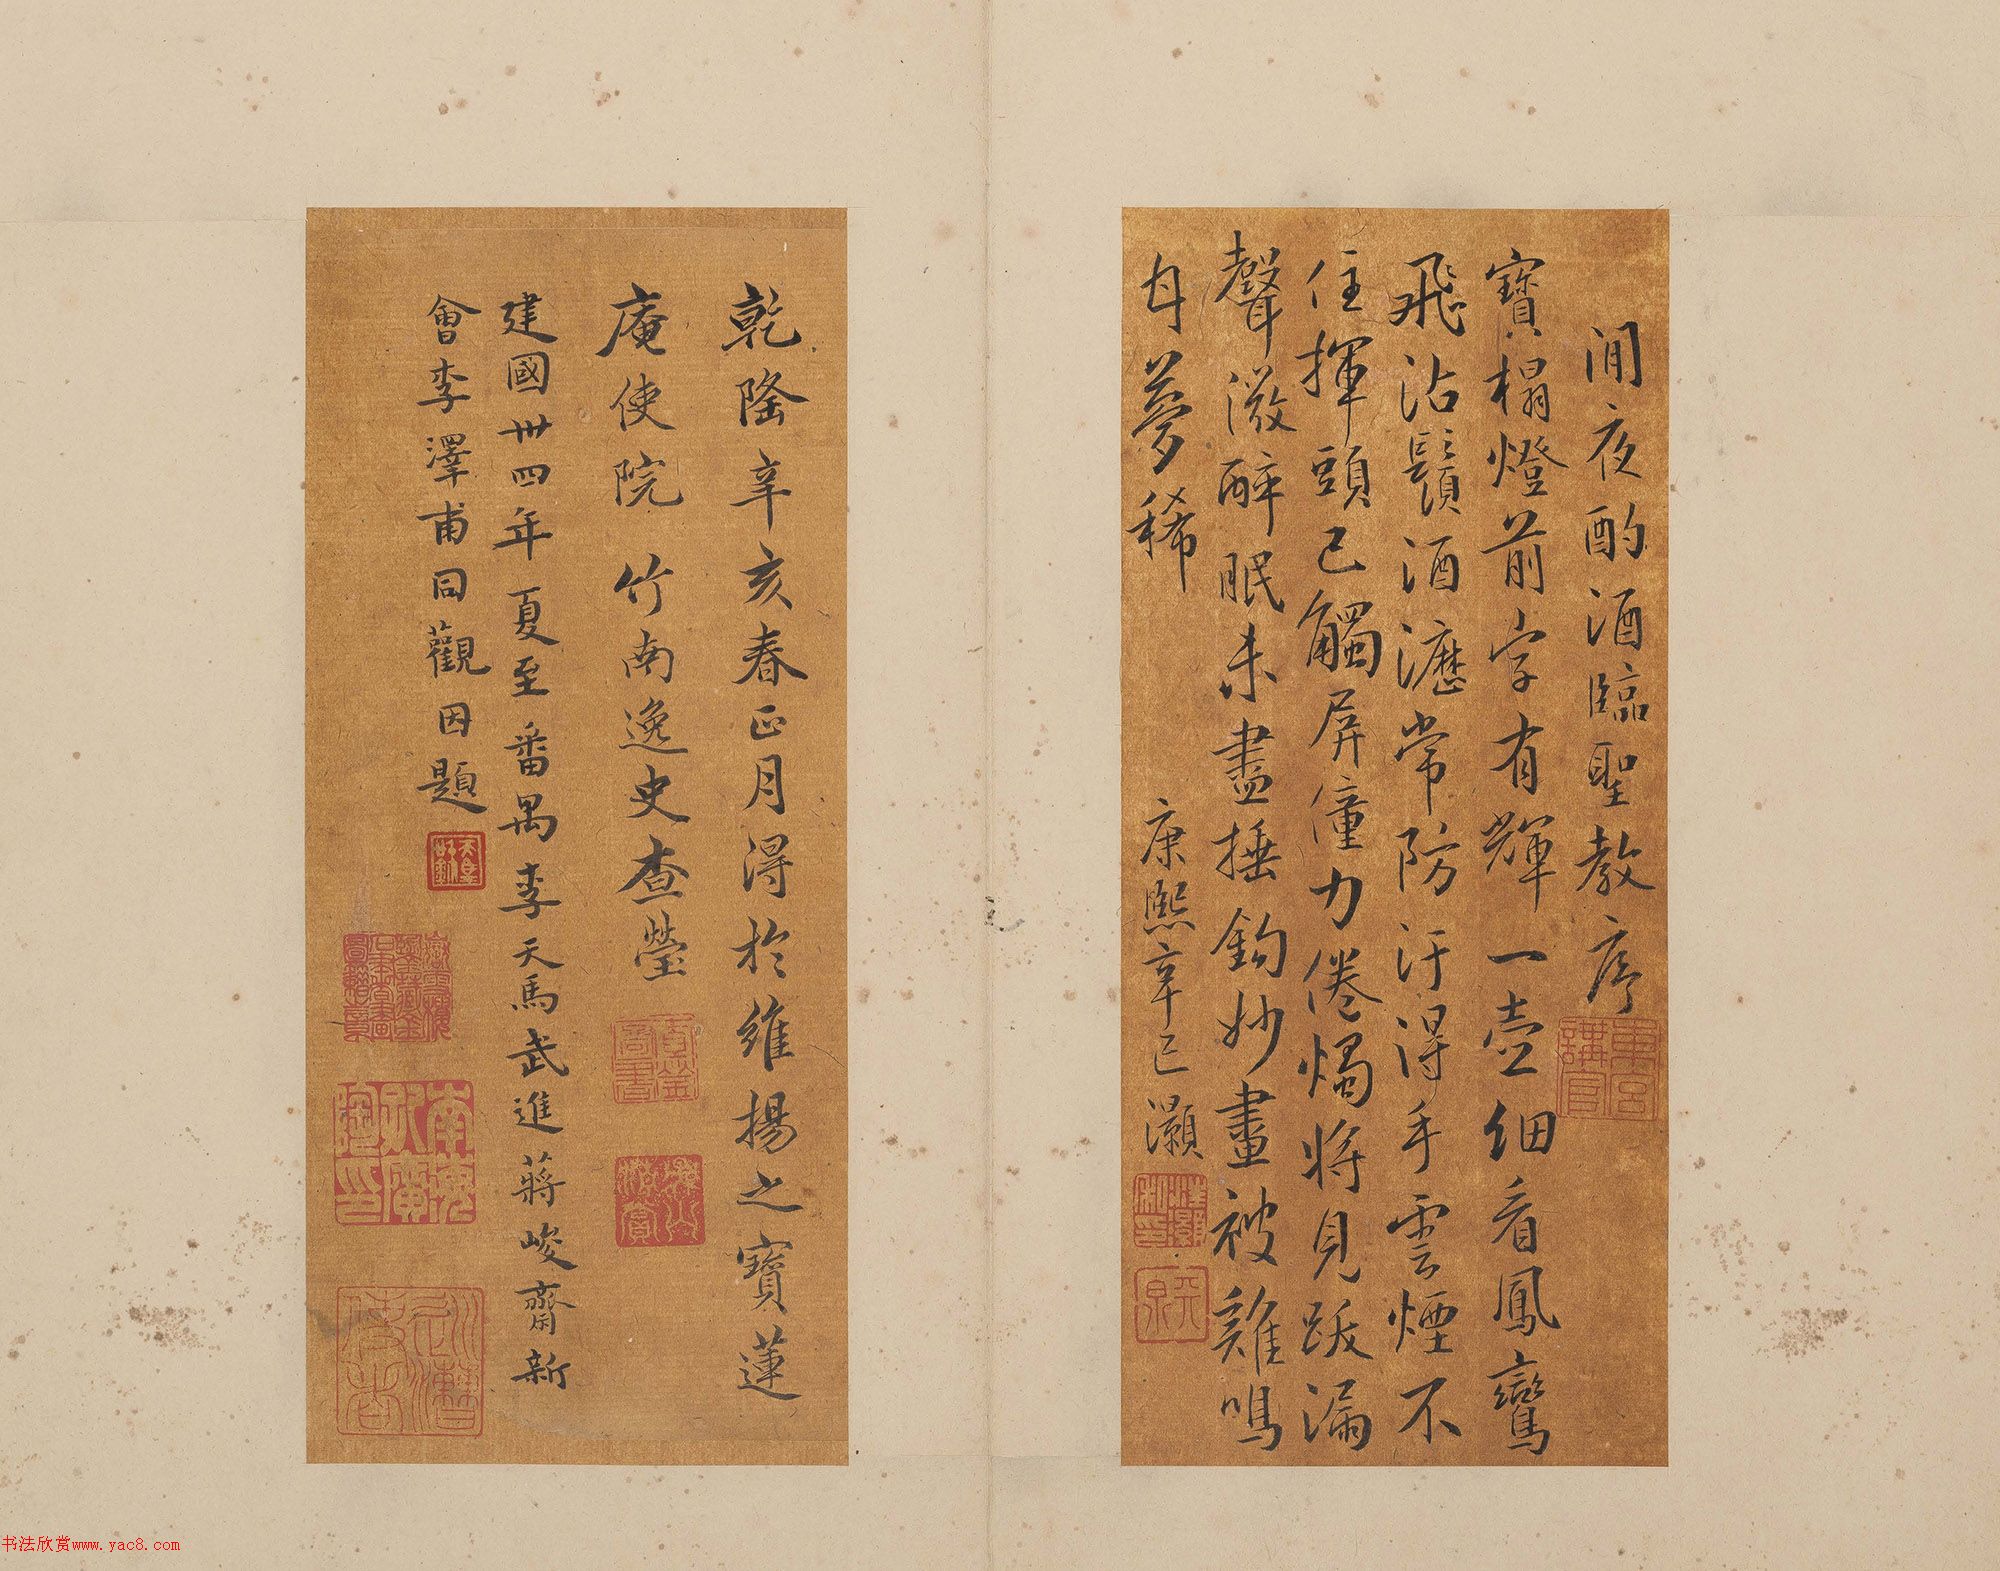 閒夜酌酒臨聖教序
寶榻燈前字有輝一壺細看鳳鸞
飛沾鬚酒瀝常防汙得手雲煙不
住揮頭已觸屏童力倦燭將見跋漏
聲微醉眠未盡捶鉤妙畫被雞鳴
自夢稀
康熙辛巳灝
東宮講官
乾隆辛亥春正月得於維揚之寶蓮
庵使院 竹南逸史查瑩
建國卅四年夏至番禺李天馬武進蔣峻齋新
會李澤甫同觀因題
书法欣赏www.yac8.com